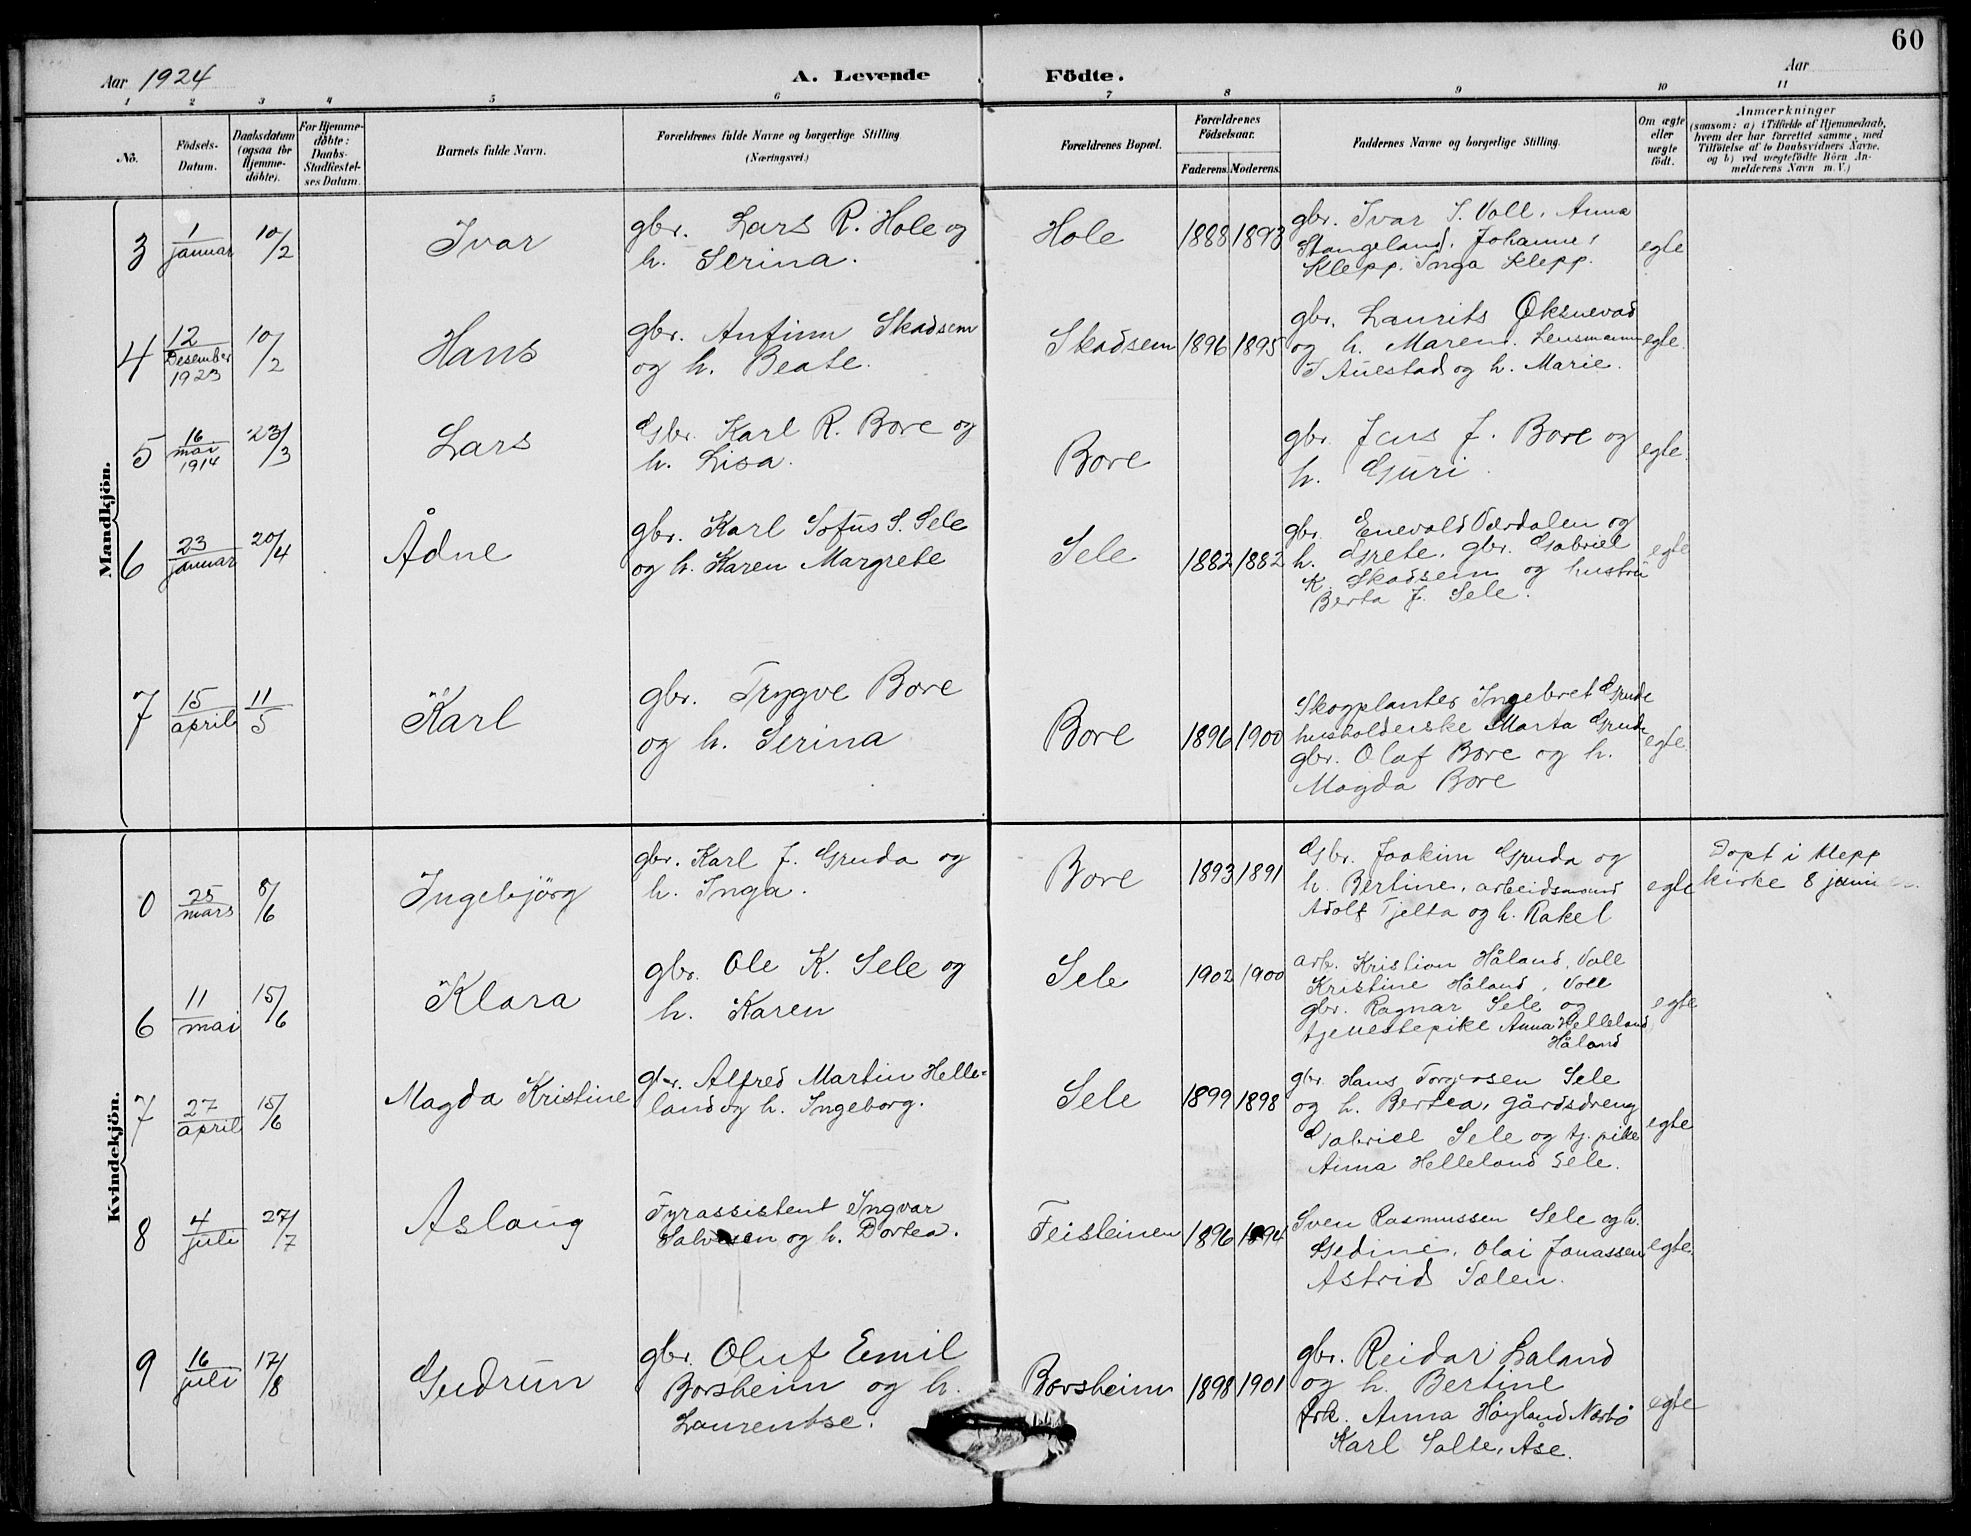 60
Aar 1924
A. Levende Födte.
Aar
1 2 3 4 5 6 7 8 9 10 11
No.
Födsels-Datum.
Daabsdatum (ogsaa for Hjemme-döbte).
For Hjemme-döbte: Daabs-Stadfæstel-ses Datum.
Barnets fulde Navn.
Forældrenes fulde Navne og borgerlige Stilling
(Næringsvei.)
Forældrenes Bopæl.
Forældrenes Födselsaar.
Faderens. Moderens.
Faddernes Navne og borgerlige Stilling.
Om ægte eller uægte födt.
Anmærkninger
(saasom: a) i Tilfælde af Hjemmedaab,
hvem der har forrettet samme, med
Tilföielse af to Daabsvidners Navne.
og b) ved uægtefödte Börn An-
melderens Navn m.V.)
Mandkjön.
3 1 januar 10/2 Ivar
gbr. Lars R. Hole og
h. Serina.
Hole 1888 1893
gbr. Ivar S. Voll, Anna
Stangeland, Johannes
Klepp. Inga Klepp.
egte
4 12 Desember 1923 10/2 Hans
gbr. Anfinn Skadsem
og h. Beate.
Skadsem 1896 1895
gbr. Laurits Øksnevad
og h. Maren. Lensmann
T Auestad og h. Marie.
egte.
5 16 mai 1914 23/3 Lars
Gbr. Karl R. Bore og
h. Lisa.
Bore
gbr. Jens J. Bore og
h. Guri.
egte.
6 23 januar 20/4 Ådne
gbr. Karl Sofus S. Sele
og h. Karen Margrete
Sele 1882 1882
gbr. Enevald Værdalen og
h. Grete, gbr. Gabriel
K. Skadsem og hustru
Berta J. Sele.
egte
7 15 april 11/5 Karl
gbr. Trygve Bore
og h. Serina
Bore 1896 1900
Skogplanter Ingebret Grude
husholderske Marta Grude
gbr. Olaf Bore og h.
Magda Bore
egte.
Kvindekjön.
0 25 mars 8/6 Ingebjörg
gbr. Karl J. Gruda og
h. Inga.
Bore 1893 1891
Gbr. Joakim Gruda og
h. Bertine, arbeidsmand
Adolf Tjelta og h. Rakel
egte
Döpt i Klepp
kirke 8 juni
6 11 mai 15/6 Klara
gbr. Ole K. Sele og
h. Karen
Sele 1902 1900
arb. Kristian Håland, Voll
Kristine Håland, Voll
gbr. Ragnar Sele og
tjenestepike Anna Helleland
Håland
egte
7 27 april 15/6 Magda Kristine
gbr. Alfred Martin Helle-
land og h. Ingeborg.
Sele 1899 1898
gbr. Hans Torgersen Sele
og h. Bertea, gårdsdreng
Gabriel Sele og tj. pike
Anna Helleland Sele.
egte
8 4 juli 27/7 Aslaug
Fyrassistent Ingvar
Salvesen og h. Dortea.
Feisteinen 1896 1894
Sven Rasmussen Sele og h.
Gedine, Olai Jonassen
Astrid Sælen.
egte.
9 16 juli 17/8 Gudrun
gbr. Oluf Emil
Borsheim og h.
Laurentse.
Borsheim 1898 1901
gbr. Reidar Laland
og h. Bertine
frk. Anna Høyland Nærbø
Karl Salte, Åse.
egte